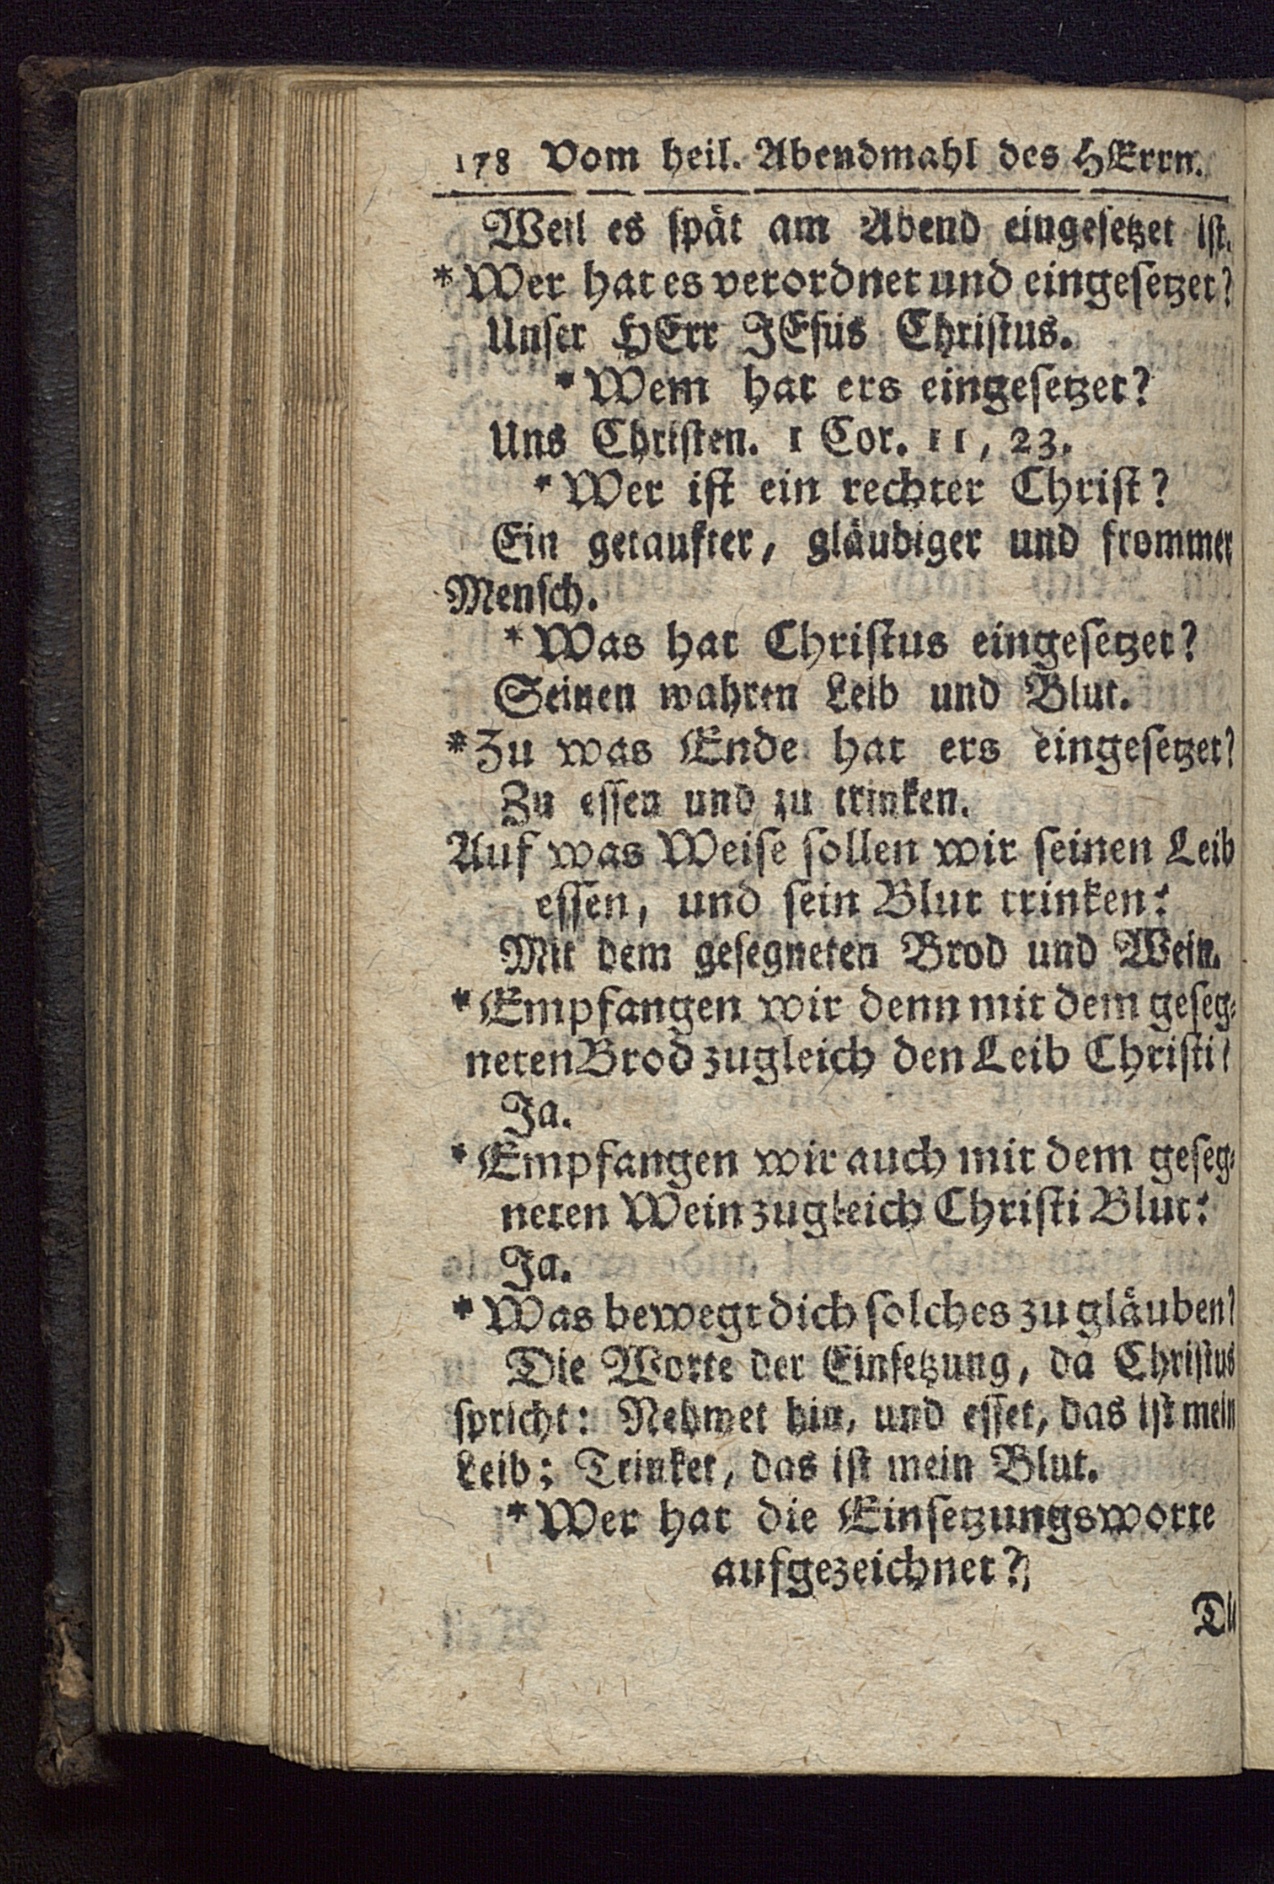 178 Vom heil. Abendmahl des HErrn.
Weil es spät am Abend eingesetzet ist.
*Wer hat es verordnet und eingesetzet?
Unser HErr JEsus Christus.
*Wem hat ers eingesetzet?
Uns Christen. 1 Cor. 11, 23.
*Wer ist ein rechter Christ?
Ein getaufter, gläubiger und frommer
Mensch.
*Was hat Christus eingesetzet?
Seinen wahren Leib und Blut.
*Zu was Ende hat ers eingesetzet?
Zu essen und zu trinken.
Auf was Weise sollen wir seinen Leib
essen, und sein Blut trinken?
Mit dem gesegneten Brod und Wein.
*Empfangen wir denn mit dem geseg-
neten Brod zugleich den Leib Christi?
Ja.
*Empfangen wir auch mit dem geseg-
neten Wein zugleich Christi Blut?
Ja.
*Was bewegt dich solches zu gläuben?
Die Worte der Einsetzung, da Christus
spricht: Nehmet hin, und esset, das ist mein
Leib; Trinket, das ist mein Blut.
*Wer hat die Einsetzungsworte
aufgezeichnet?
Die